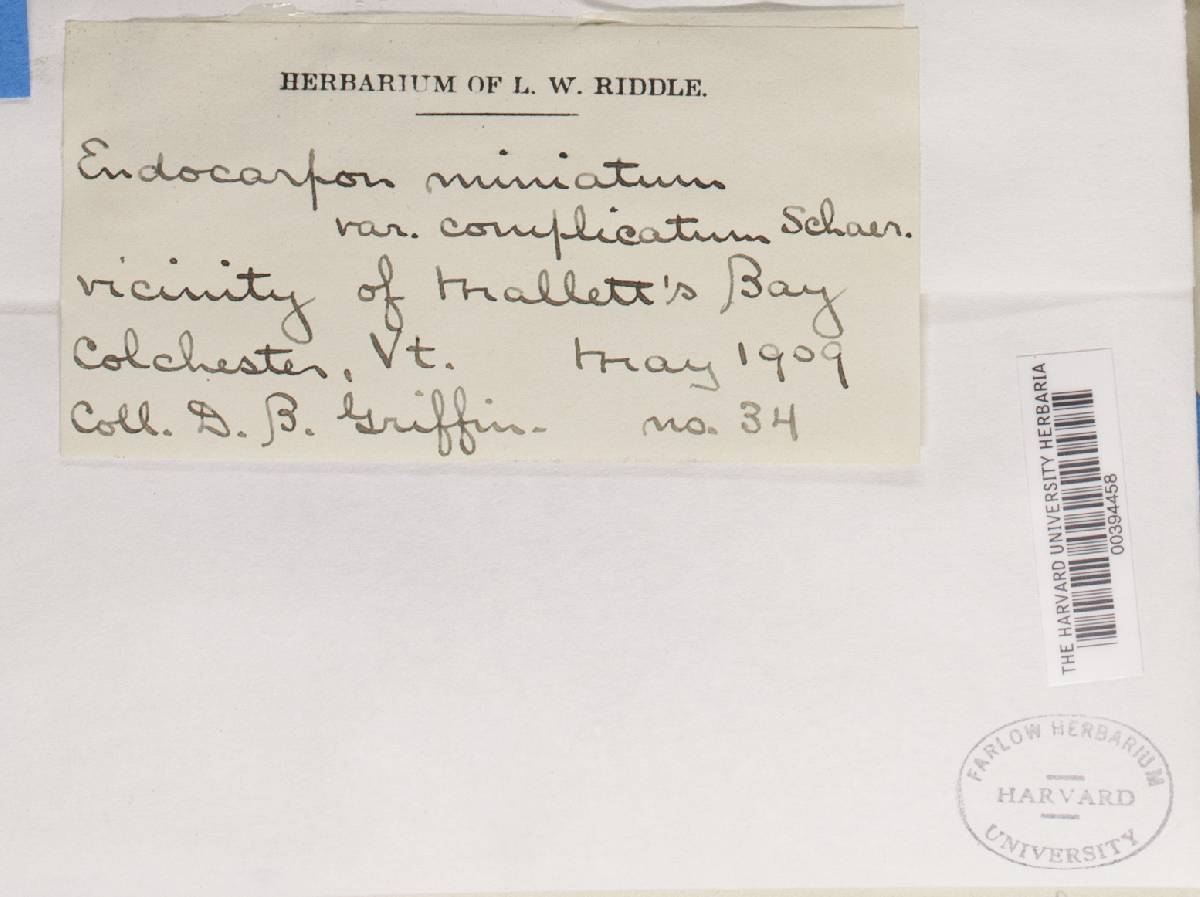 HERBARIUM OF L. W. RIDDLE.
Endocarpon miniatum
var. complicatum Schaer.
vicinity of Mallett's Bay
Colchester, Vt. May 1909
Coll. D. B. Griffin. no. 34
THE HARVARD UNIVERSITY HERBARIA
00394458
FARLOW HERBARIUM
HARVARD
UNIVERSITY